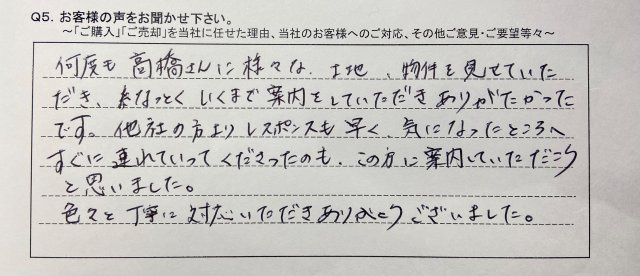 Q5. お客様の声をお聞かせ下さい。
～「ご購入」「ご売却」を当社に任せた理由、当社のお客様へのご対応、その他ご意見・ご要望等々～
何度も高橋さんに様々な、土地、物件を見せていた
だき、納なっとくいくまで案内をしていただきありがたかった
です。他社の方よりレスポンスも早く、気になったところへ
すぐに連れていってくださったのも、この方に案内していただこう
と思いました。
色々と丁寧に対応いただきありがとうございました。